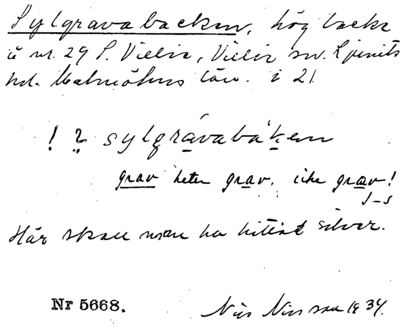 Sylgravabacken, hög backe
å nr. 29 S. Vielie, Vielie sn. Ljunits
hd. Malmöhus län. i 21.
! ? sylgràvabá'ken
grav heter grav, icke grav!
J-s
Här skall man ha hittat silver.
Nr 5668.
Nils Nilsson 1934.